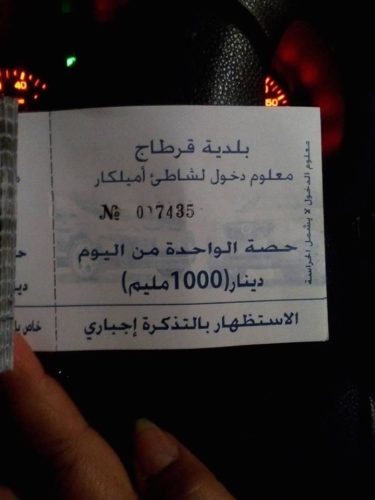 بلدية قرطاج
معلوم دخول لشاطئ أميلكار
№ 017435
حصة الواحدة من اليوم
دينار(1000مليم)
الاستظهار بالتذكرة إجباري
معلوم الدخول لا يشمل الحراسة
40
50